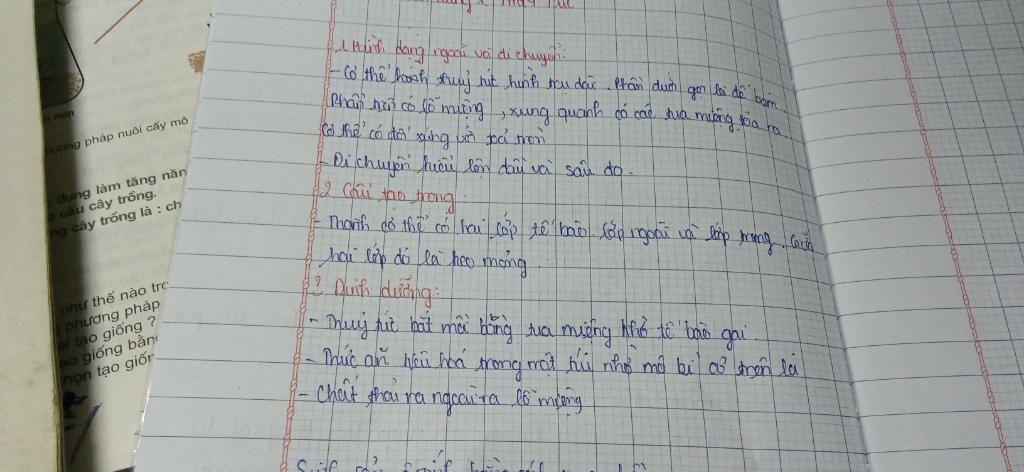 1. Hình dạng ngoài và di chuyển:
- Cơ thể hành thuỷ tức hình trụ dài. Phần dưới gọn lại đế bám
Phần trên có lỗ miệng, xung quanh có các tua miệng tỏa ra
Cơ thể có đối xứng với toả tròn
- Di chuyển kiểu lộn đầu và sâu đo.
2. Cấu tạo trong
- Thành cơ thể có hai lớp tế bào lớp ngoài và lớp trong, Giữa
hai lớp đó là keo mỏng
3 Dinh dưỡng:
- Thuỷ tức bắt mồi bằng tua miệng nhờ tế bào gai.
- Thức ăn tiêu hoá trong một túi nhờ mô bì cơ
- Chất thải ra ngoài ra lỗ miệng
n non
pháp nuôi cấy mô
dụng làm tăng năn
cấu cây trồng.
cây trồng là : ch
như thế nào trc
phương pháp
tạo giống ?
giống bằn
tạo giốn